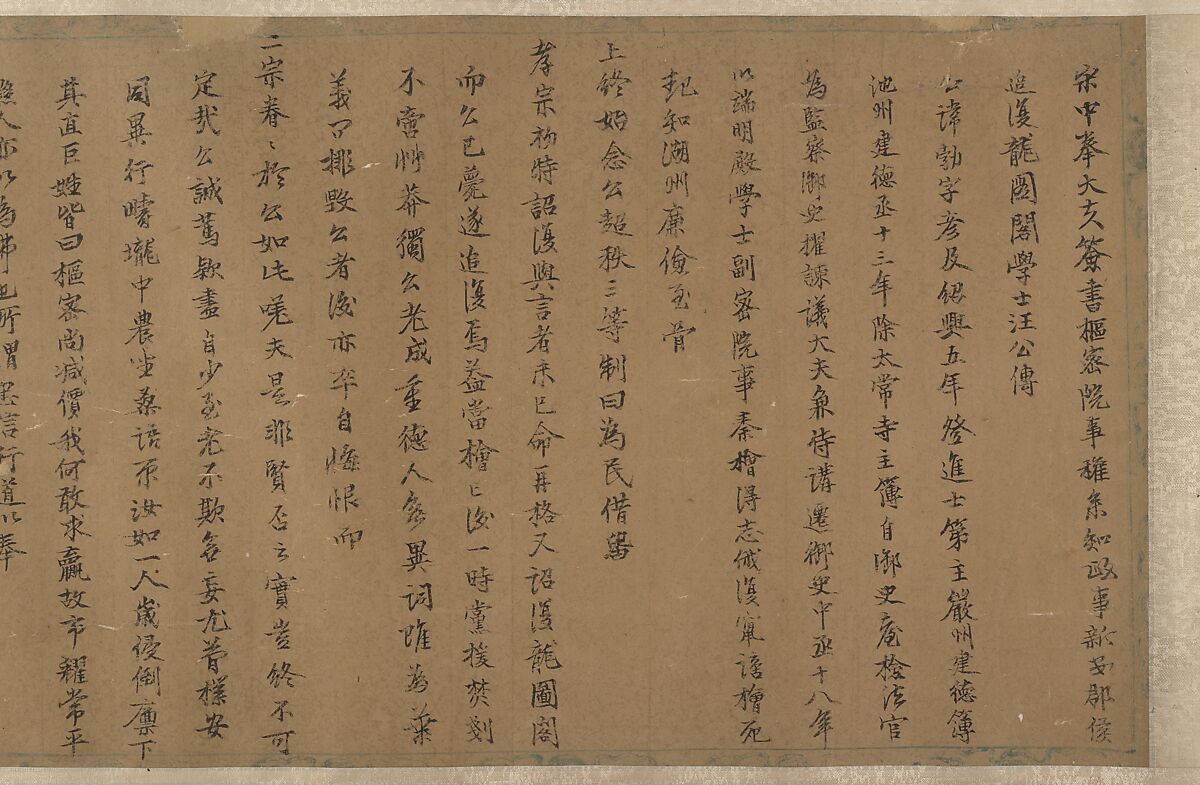 宋中奉大夫簽書樞密院事權參知政事新安郡侯
追復龍圖閣學士汪公傳
公諱勃字彥及紹興五年登進士第主嚴州建德簿
池州建德丞十三年除太常寺主簿自御史臺檢法官
為監察御史擢諫議大夫兼侍講遷御史中丞十八年
以端明殿學士副密院事秦檜得志俄復竄謫檜死
起知湖州廉儉至骨
上終始念公超秩三等制曰為民借
孝宗初特詔復與言者未已命再格又詔復龍圖閣
而公已薨遂追復焉益當檜之後一時黨援焚剗
不啻艸莽獨公老成重德人無異詞雖為葉
義問排毀公者後亦卒自悔恨而
二宗眷〻於公如此嗟夫是非賢否之實豈終不可
定哉公誠篤欵盡自少至老不欺無妄尤簡樸安
同異行疇壠中農坐桑語原汝如一人歲侵倒廩下
其直巨姓皆曰樞密尚減價我何敢求贏故市糴常平
人亦以為佛也所謂忠信行道以奉